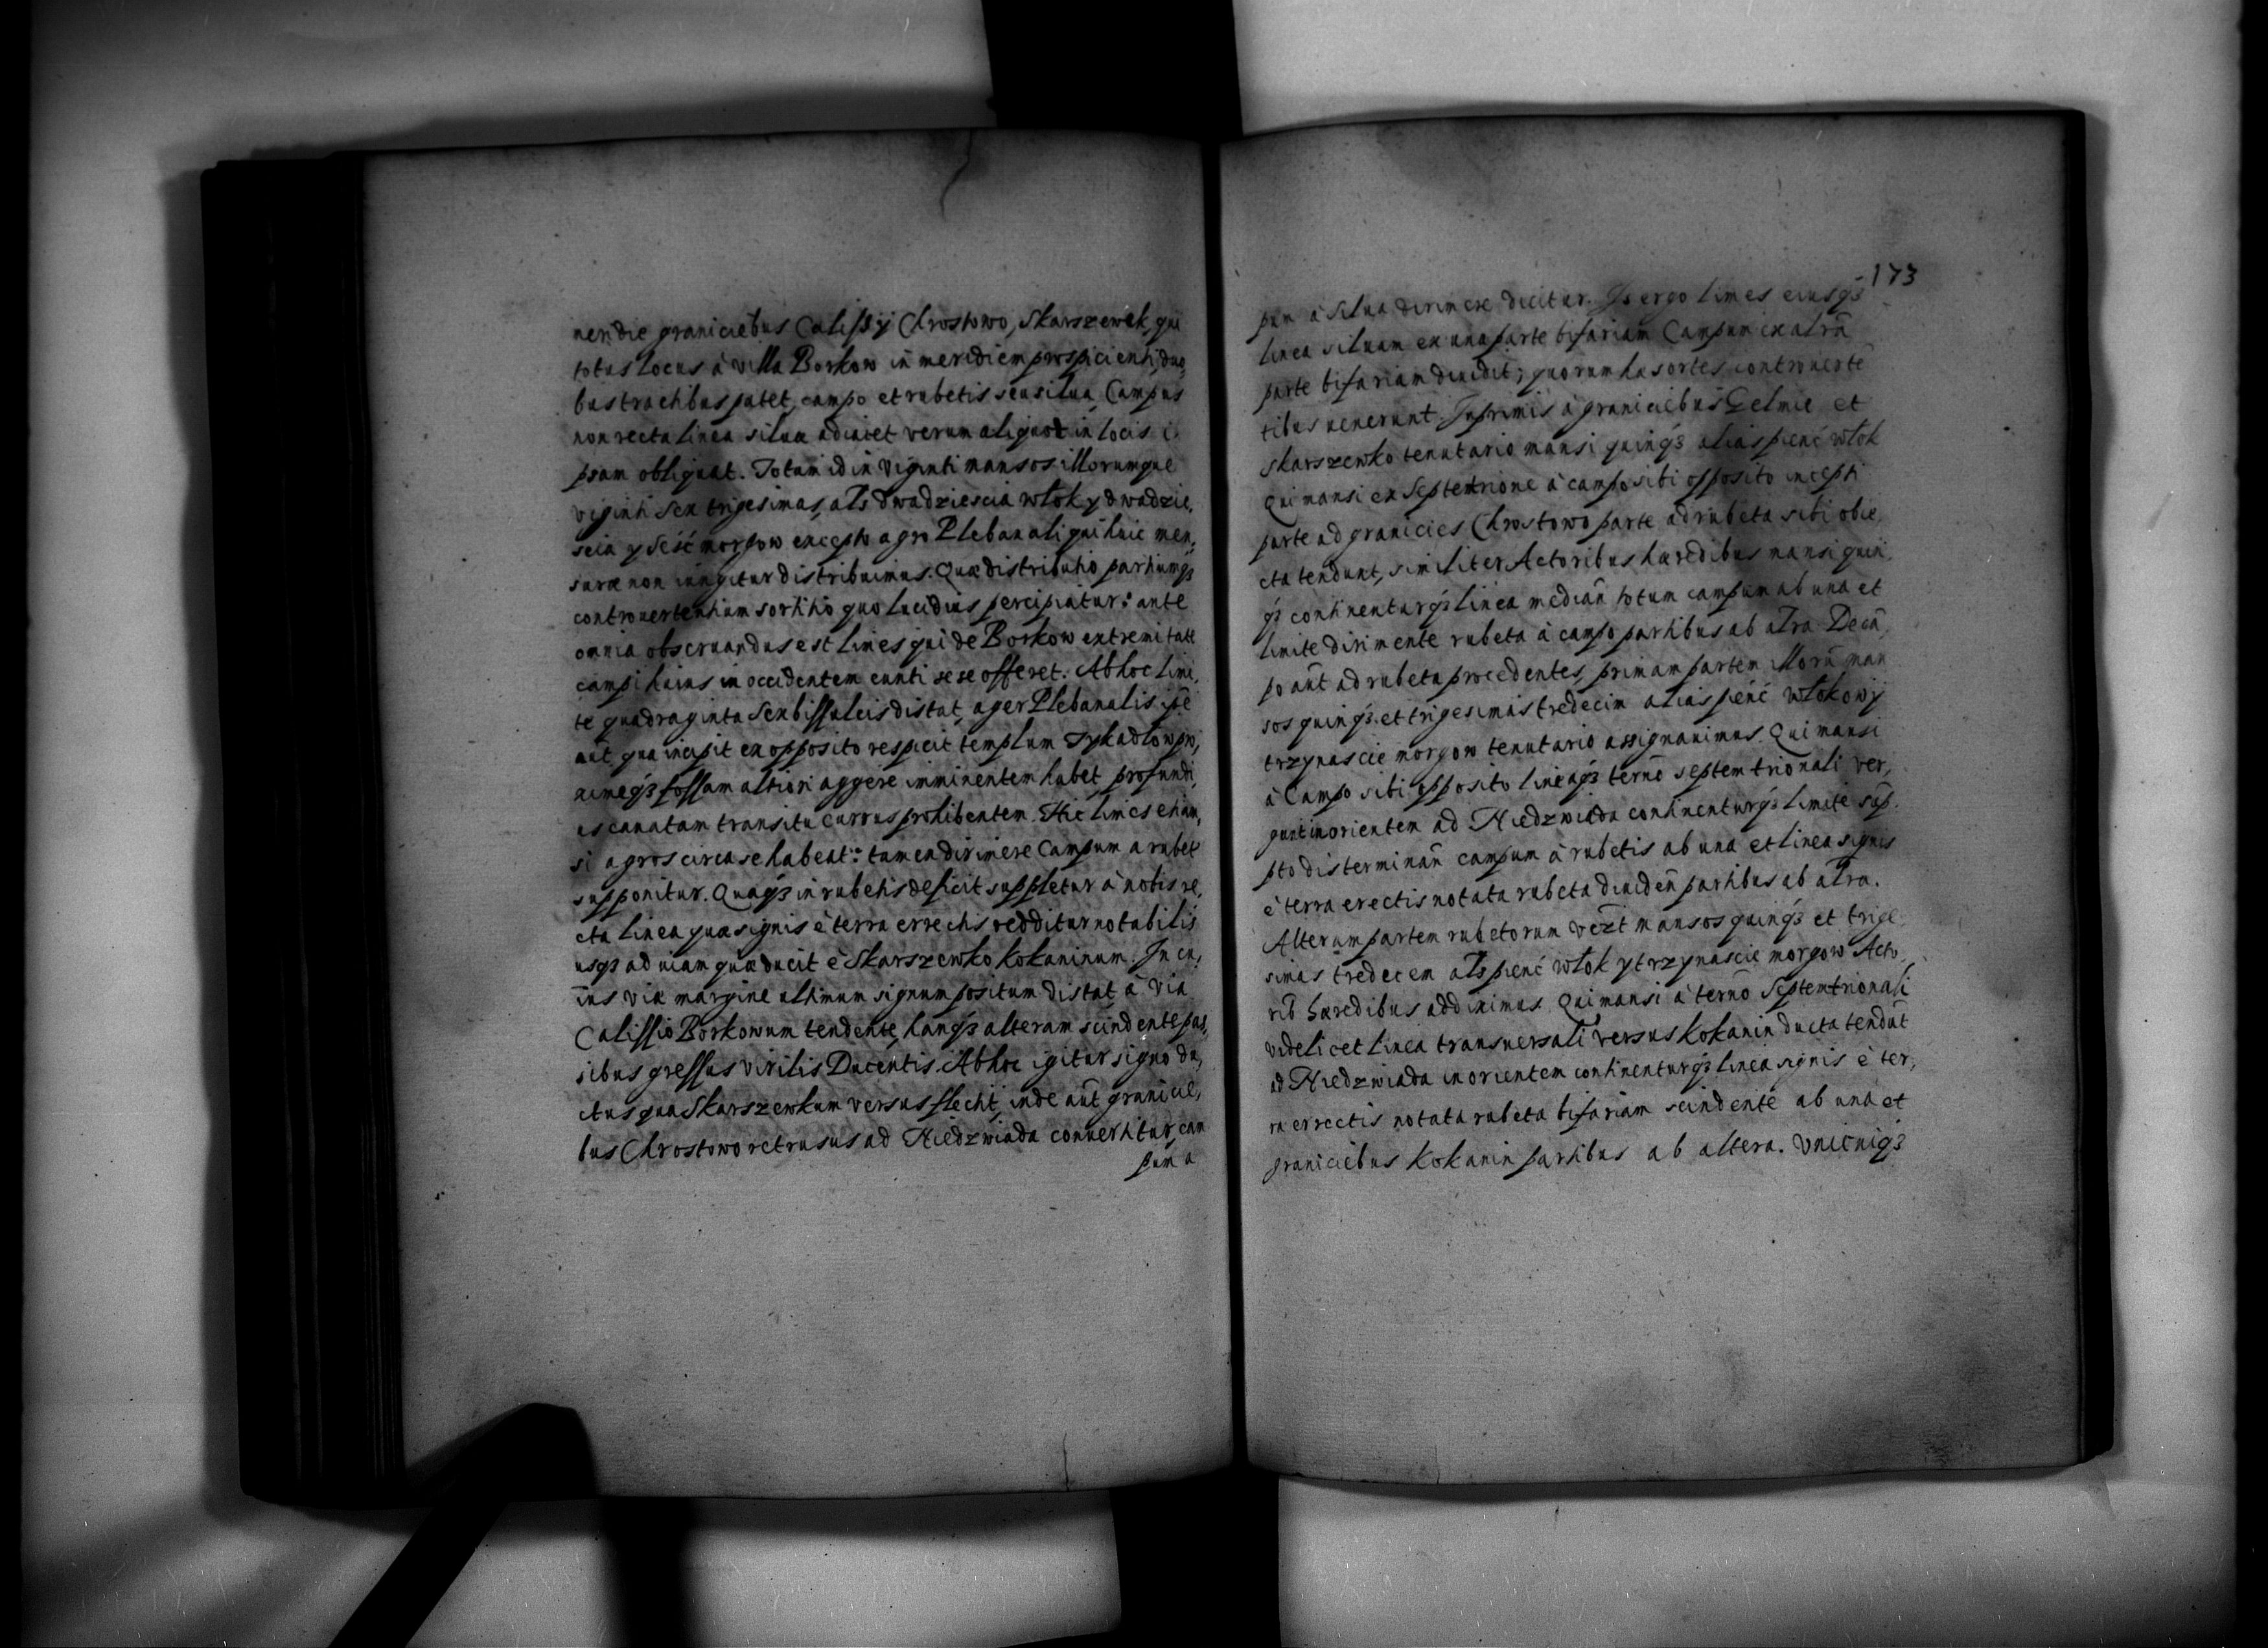 neridie graniciebus Calissy Chrostowo, Skarszewek, qui
totus locus à villa Borkow in meridiem prospicienti, duo,
bus tractibus patet, campo et rubetis seu silua, Campus
non recta linea siluæ adiacet verum aliquot in locis i
psam obliquat. Totum id in viginti mansos illorumque
viginti sex trigesimas, als dwadziescia włok y dwadzie,
scia y sesć morgow excepto agro Plebanali qui huic men,
suræ non iungitur distribuimus. Quæ distributio partiumqȝ
controuertentium sortitio quo lucidius percipiatur: ante
omnia obseruandus est limes qui de Borkow extremitate
campi huius in occidentem eunti sese offeret. Ab hoc limi,
te quadraginta sex bissulcis distat, ager Plebanalis ipē
aūt, qua incipit ex opposito respicit templum Tykadłow pro,
ximeqȝ fossam altiori aggere imminentem habet, profundi,
us canatam transitu currus prohibentem. Hic limes etiam,
si agros circa se habeat: tamen dirimere Campum a rubet
supponitur. Quaqȝ in rubetis deficit suppletur à nobis re,
cta linea quæ signis è terra errectis redditur notabilis
usqȝ ad viam quæ ducit è Skarszewko Kokaninum. In cu,
ius viæ margine ultimum signum positum distat à via
Calissio Borkowum tendente, hanqȝ alteram scindente pas,
sibus gressus virilis Ducentis. Ab hoc igitur signo du,
ctus qua Skarszewkum versus flectit, inde aūt granicie,
bus Chrostowo retrusus ad Niedzwiada conuertitur, cam
pum a
173
pum à silua dirimere dicitur. Is ergo limes eiusqȝ
linea siluam ex una parte bifariam Campum ex altrā
parte bifariam diuidit; quorum hæ sortes controuertē
tibus uenerunt. Inprimis à graniciebus Zelmie et
Skarszewko tenutario mansi quinqȝ alias pienć włok
Qui mansi ex Septemtrione à campo sibi opposito incepti
parte ad granicies Chrostowo parte ad rubeta sibi obie,
cta tendunt, similiter Actoribus hæredibus mansi quin,
qȝ continenturqȝ linea mediān totum campum ab una et
limite dirimente rubeta à campo partibus ab altra. De cā,
po aūt ad rubeta procedentes, primam partem illorū man
sos quinqȝ et trigesimas tredecim alias pienć włok owy
trzynascie morgow tenutario assignauimus. Qui mansi
à Campo sibi opposito lineaqȝ ternō septemtrionali ver,
gunt in orientem ad Niedzwiada continenturqȝ limite sūp.
pto disterminān campum à rubetis ab una et linea signis
è terra erectis notata rubeta diuidēn partibus ab altra.
Alteram partem rubetorum vēzt mansos quinqȝ et trige
simas tredecem als pienć włok y trzynascie morgow Acto,
rib hæredibus addiximus. Qui mansi à ternō Septemtrionali
videlicet linea transuersali versus Kokanin ducta tendūt
ad Niedzwiada in orientem continenturqȝ linea signis è ter,
ra errectis notata rubeta bifariam scindente ab una et
graniciebus Kokanin partibus ab altera. Vnicuiqȝ